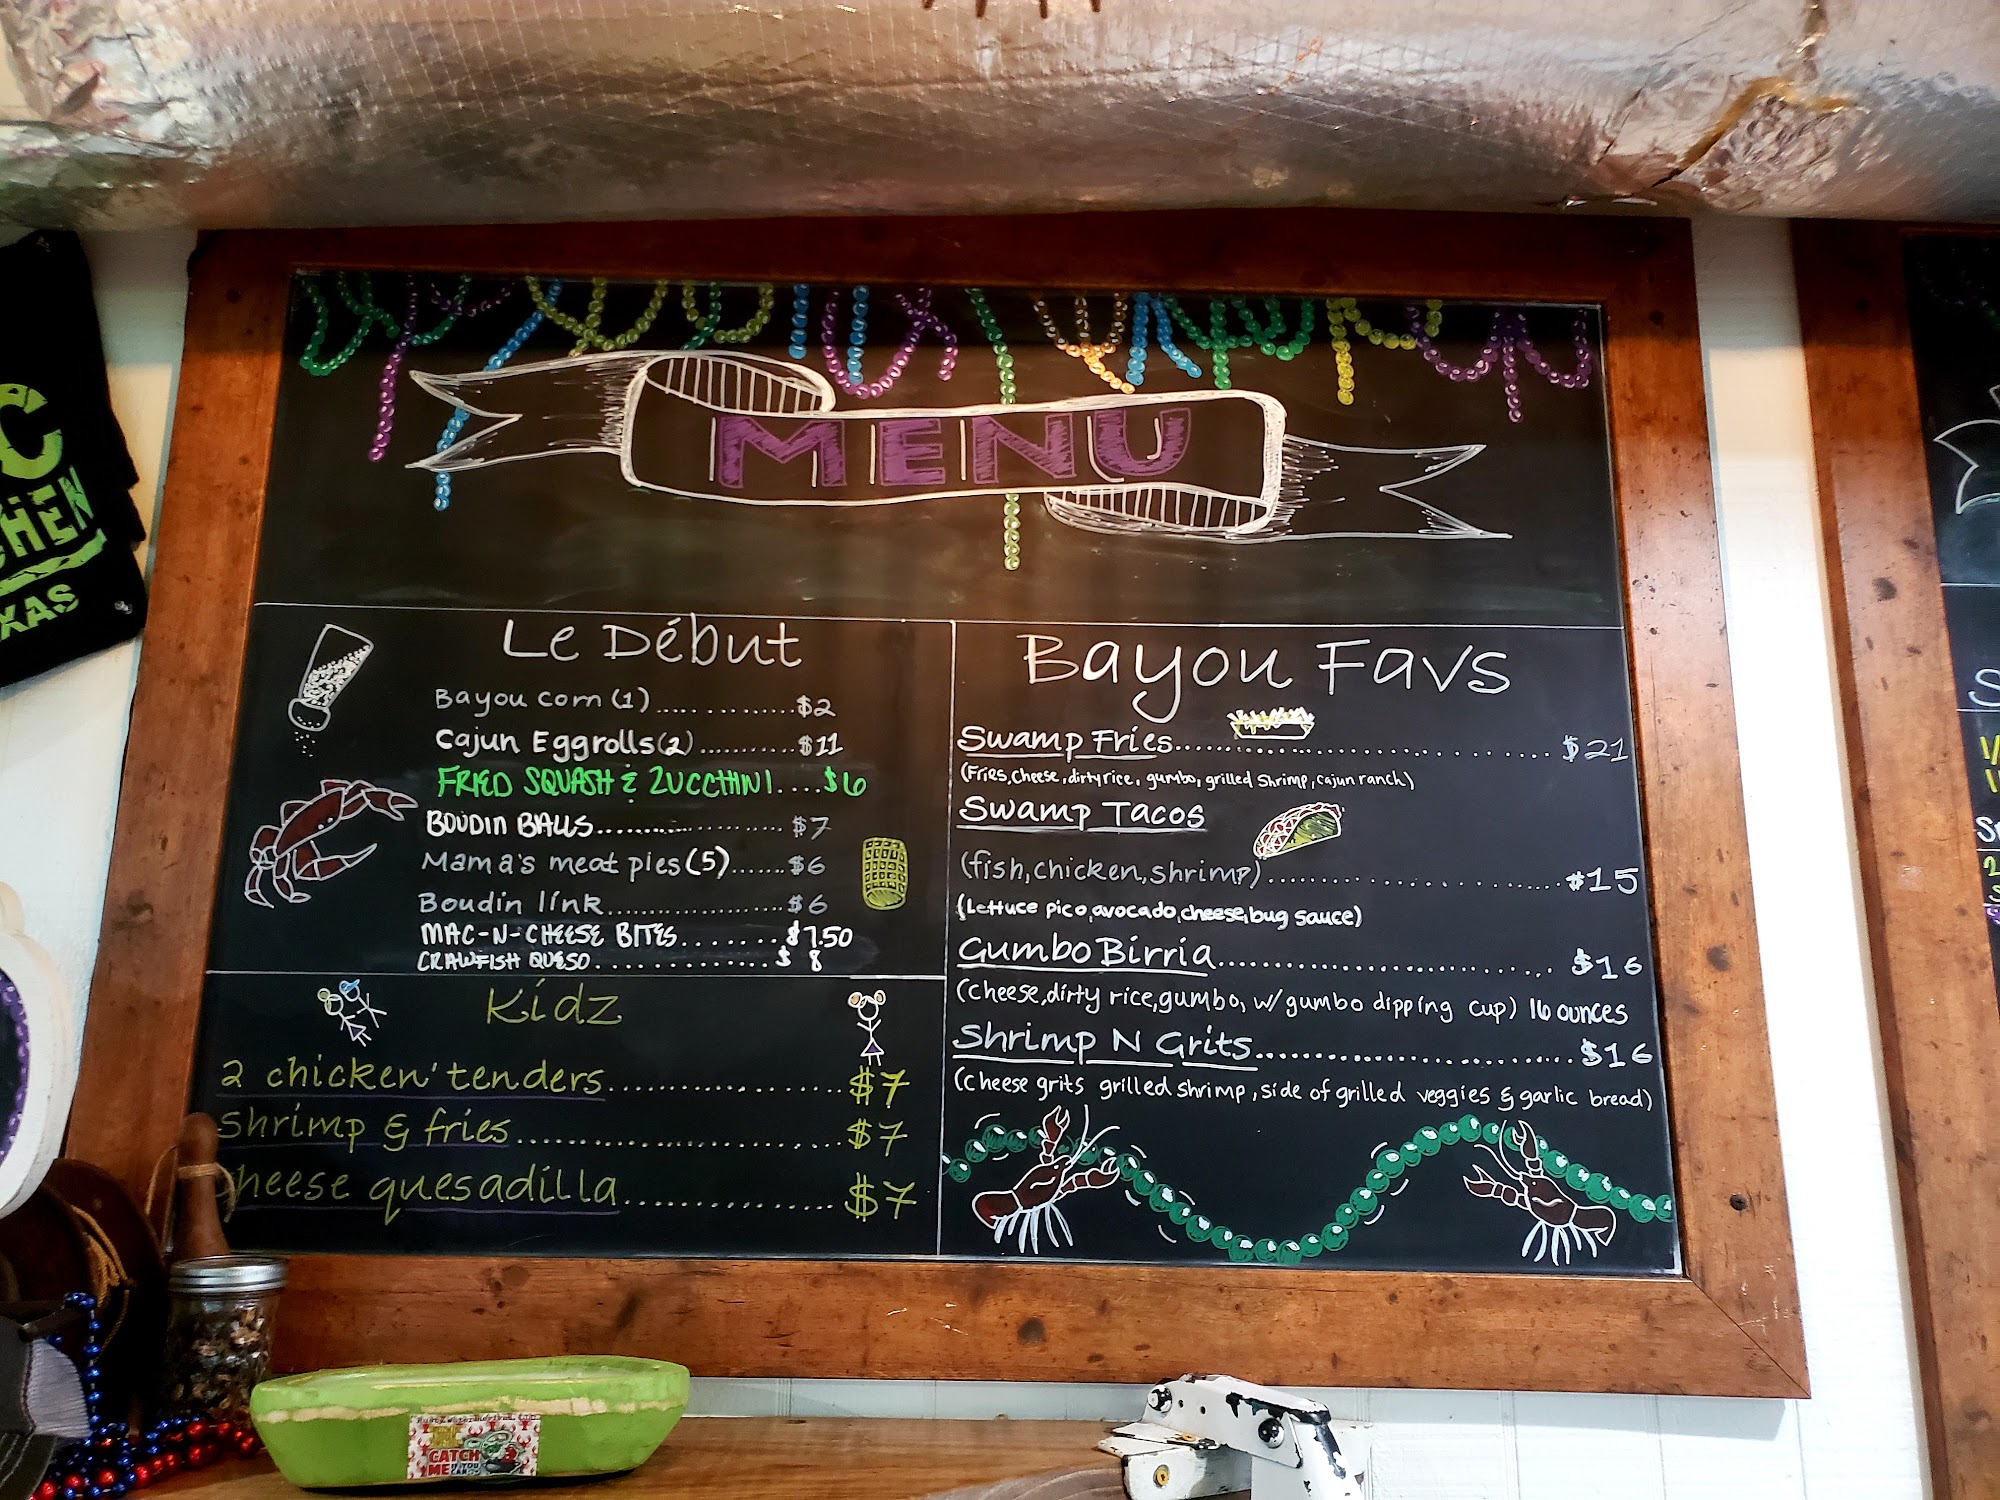 MENU
Le Début
Bayou corn (1) .................. $2
Cajun Eggrolls (2) ........... $11
FRIED SQUASH & ZUCCHINI .... $6
BOUDIN BALLS ..................... $7
Mama's meat pies (5) ....... $6
Boudin link ...................... $6
MAC-N-CHEESE BITES ....... $7.50
CRAWFISH QUESO ............. $ 8
Kidz
2 chicken' tenders .................. $7
Shrimp & fries ......................... $7
cheese quesadilla ................ $7
Bayou Favs
Swamp Fries ................................ $21
(Fries, cheese, dirty rice, gumbo, grilled shrimp, cajun ranch)
Swamp Tacos
(fish, chicken, shrimp) ........................ $15
(Lettuce pico, avocado, cheese, bug sauce)
Gumbo Birria ................................ $16
(cheese, dirty rice, gumbo, w/ gumbo dipping cup) 16 ounces
Shrimp N Grits ............................ $16
(cheese grits grilled shrimp, side of grilled veggies & garlic bread)
CATCH
ME IF YOU
CAN